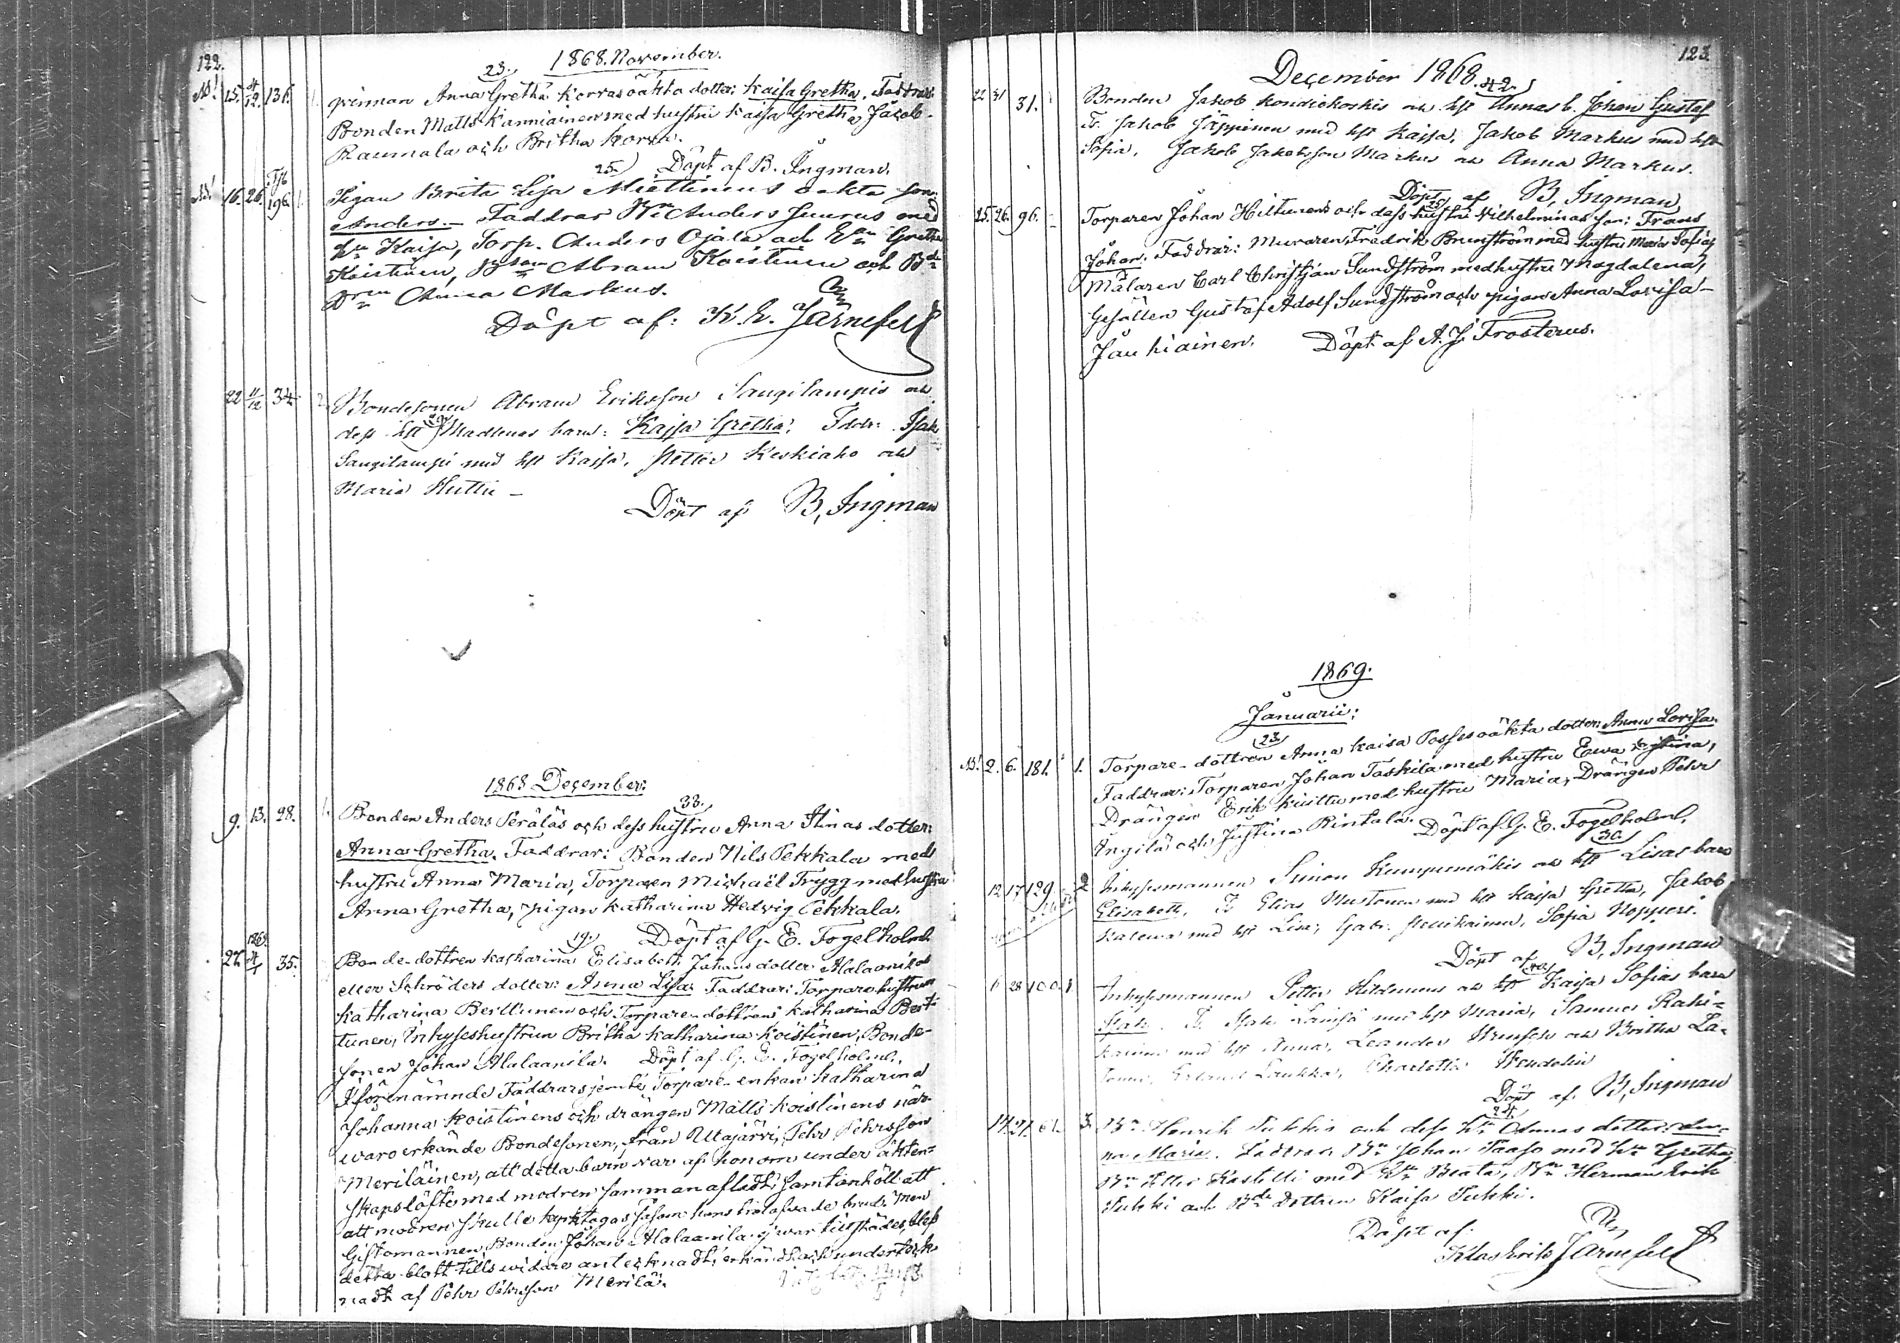 122.
1868. November.
23.
N! 15. 4/12. 136. 1. qvinnan Anna Gretha Korras oäkta dotter: Kaisa Gretha. Faddrar:
Bonden Matts Kanniainen med hustru Kaisa Gretha, Jacob
Raumala och Britha Korra.
Döpt af B. Ingman.
25.
N! 16. 26. 196. 1. Pigan Brita Lisa Miettinens oäkta son
Anders. — Faddrar Bn Anders Juurus med
hu Kaisa, Torp. Anders Ojala och Gretha
Koistinen, Abram Koistinen och
Anna Markus.
Döpt af: K. E. Järnefelt
22 11/12 34. 2. Bondesonen Abram Eriksson Sangilampis och
dess hst Madlenas barn: Kajsa Gretha. Fddr: Isak
Sangilampi med hst Kajsa, Petter Keskiaho och
Maria Huttu —
Döpt af B, Ingman
1868 December:
33.
9. 13. 28. 1. Bonden Anders Peräläs och dess hustru Anna Stinas dotter:
Anna Gretha. Faddrar: Bonden Nils Pekkala med
hustru Anna Maria, Torparen Michaël Trygg med hustru
Anna Gretha, pigan Katharina Hedvig Pekkala.
Döpt af G. E. Fogelholm.
19.
27. 35. Bonde-dottren Katharina Elisabeth Johans dotter Alalaanilas
eller Schröders dotter: Anna Lisa. Faddrar: Torpare hustrun
Katharina Berttunen och Torpare-dottren Katharina Bert-
tunen, Inhyseshustrun Britha Katharina Koistinen, Bonde-
sonen Johan Alalaanila. Döpt af G. E. Fogelholm.
I förenämnde Faddrars jemte Torpare-enkan Katharina
Johanna Koistinens och drängen Matts Koistinens när-
waro erkände Bondesonen, från Utajärvi, Pehr Pehrsson
Meriläinen, att detta barn var af honom under äkten-
skapslöfte med modren sammanafladt, samt anhöll att
att modren skulle upptagas såsom hans trolofwade brud. Men
Giftomannen Bonden Johan Alalaanila ej war tillstädes, blef
detta blott tills widare antecknadt, erkändt och underteck-
nadt af Pehr Pehrsson Meriläi.
123.
December 1868.
42.
22 31. 1 Bonden Jakob Kondiekoskis och hst Annas b. Johan Gustaf
F. Jakob Säppinen med hst Kaisa, Jakob Markus med hst
Sofia, Jakob Jakobsson Markus och Anna Markus.
Döpt af B, Ingman
25. 26. 96. Torparen Johan Hiltunens och dess hustru Wilhelminas son: Frans
Johan. Faddrar: Muraren Fredrik Brunström med hustru Maria Sofia,
Målaren Carl Christjan Sundström med hustru Magdalena,
Gesällen Gustaf Adolf Sundström och pigan Anna Lovisa
Jauhiainen. Döpt af A. J. Frosterus.
1869.
Januarii:
23.
N! 2. 6. 181. 1. Torpare-dottren Anna Kaisa Posses oäkta dotter: Anna Lovisa.
Faddrar: Torparen Johan Taskila med hustru Ewa Kristina,
Drängen Erik Kuittu med hustru Maria, Drängen Pehr
Ängilä och Justina Rintala. Döpt af G. E. Fogelholm.
30.
12 17 129 2 Inhysesmannen Simon Kumpumäkis och hst Lisas barn
Elisabeth. F. Elias Mustonen med hst Kaisa Gretha, Jakob
Kalewa med hst Lisa, Gabr. Heikkinen, Sofia Nopperi.
Döpt af B, Ingman
40.
6 28 100. 1 Inhysesmannen Petter Hildenens och hst Kaisa Sofias barn
Isak. F. Isak med hst Maria, Samuel Raht-
med hst Anna, Leander och Britha La-
Laukka, Charlotta Wendelin
Döpt af B, Ingman
24.
14. 27. 61. 3. Bn Henrik Tukkis och dess hu Annas dotter: An-
na Maria. Faddrar Bn Johan Paaso med hu Gretha,
Bn Petter Kestilli med hu Beata, Bn Herman Erik
Tukki och Bde dottren Kaisa Tukki.
Döpt af
Klas Erik Järnefelt